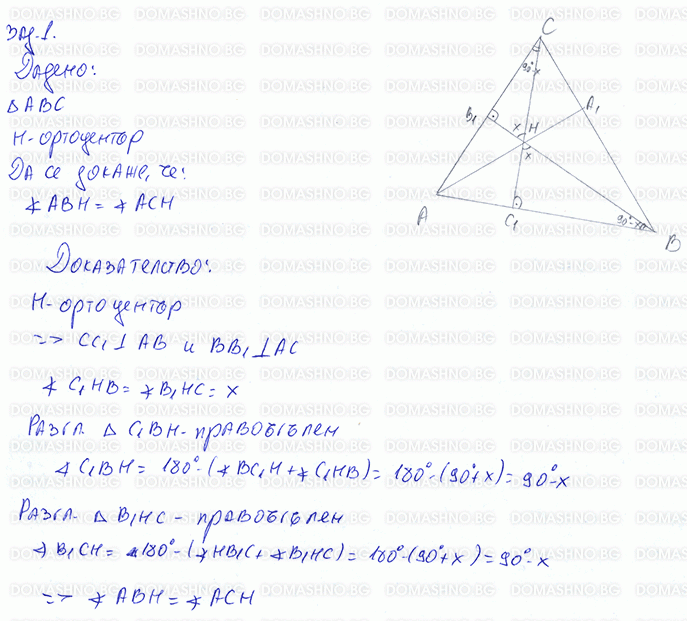 Зад.1.
Дадено:
△ABC
H-ортоцентър
Да се докаже, че:
∢ABH = ∢ACH
C
90°-x
A₁
B₁
x H
x
A
C₁
90°-x
B
Доказателство:
H-ортоцентър
=> CC₁⊥AB и BB₁⊥AC
∢C₁HB = ∢B₁HC = x
Разгл. △C₁BH-правоъгълен
∢C₁BH = 180°-(∢BC₁H+∢C₁HB) = 180°-(90°+x) = 90°-x
Разгл. △B₁HC - правоъгълен
∢B₁CH = 180°-(∢HB₁C+∢B₁HC) = 180°-(90°+x) = 90°-x
=> ∢ABH = ∢ACH
DOMASHNO.BG